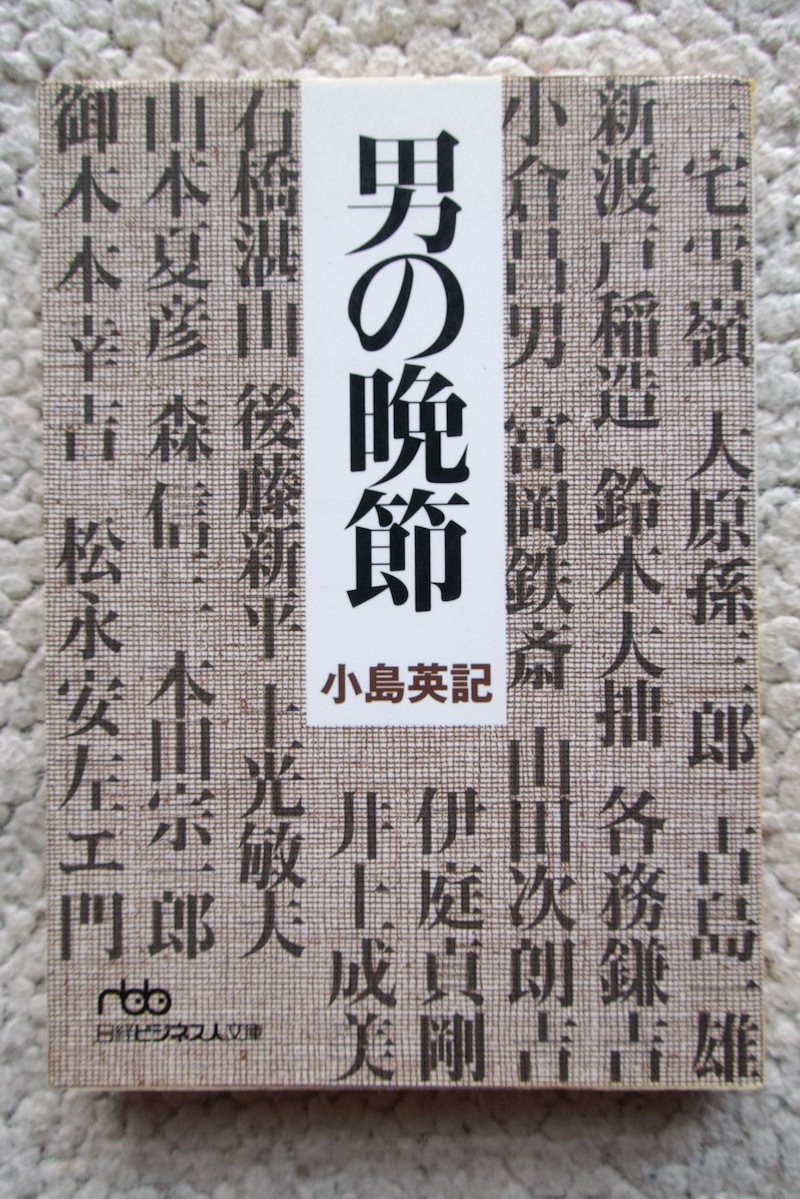 男の晩節
小島英記
三宅雪嶺 大原孫三郎 古島一雄
新渡戸稲造 鈴木大拙 各務鎌吉
小倉昌男 富岡鉄斎 山田次朗吉
伊庭貞剛
井上成美
石橋湛山 後藤新平 土光敏夫
山本夏彦 森信三 本田宗一郎
御木本幸吉 松永安左エ門
nbb
日経ビジネス人文庫